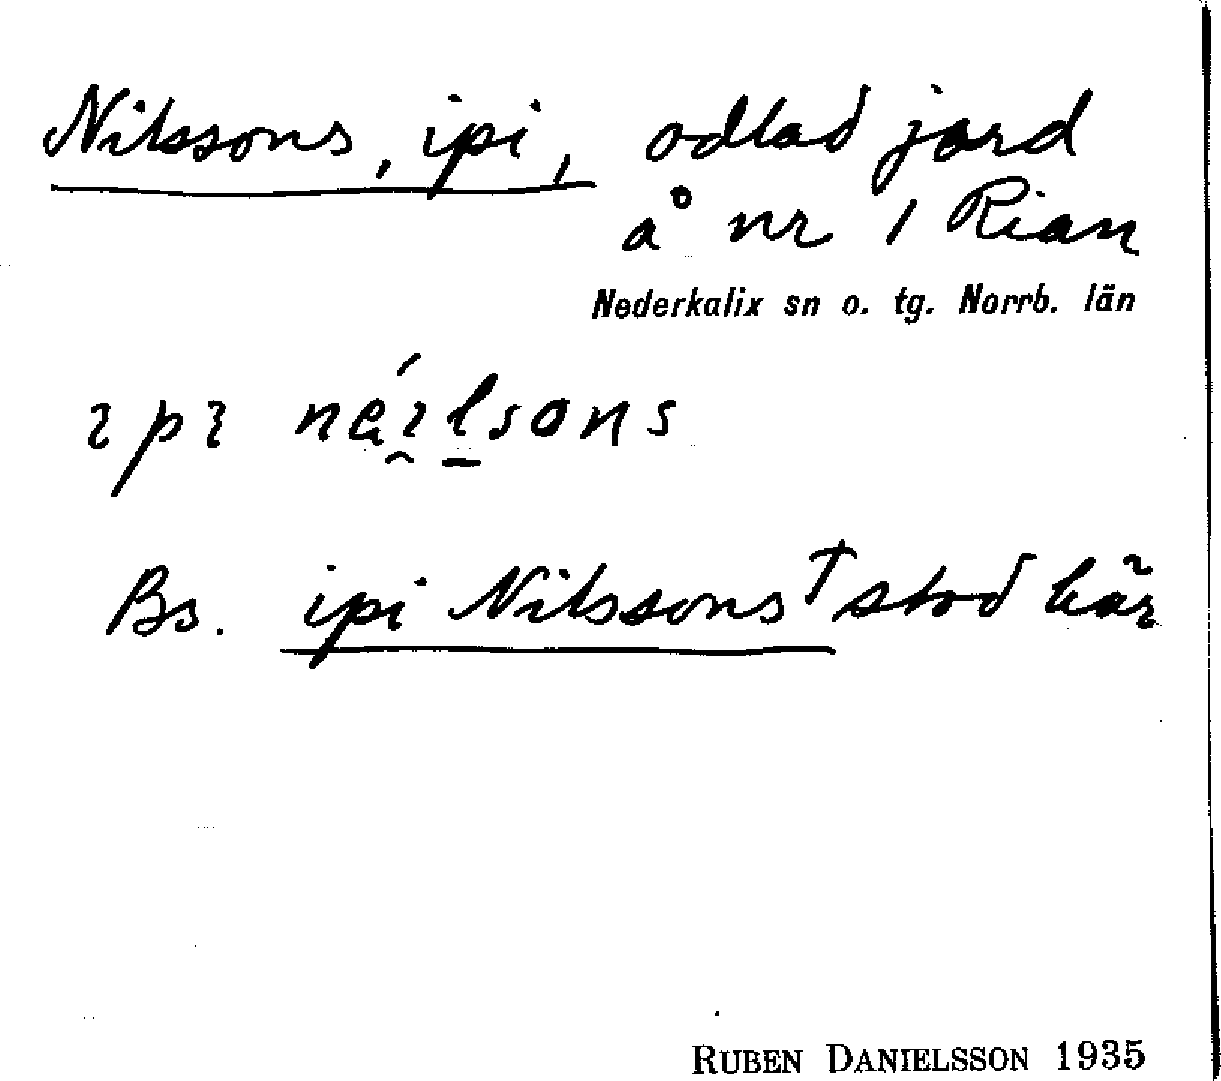 Nilssons, ipi, odlad jord
å nr 1 Rian
Nederkalix sn o. tg. Norrb. län
ɪpɪ néɪlsons
Bs. ipi Nilssons † stod här
RUBEN DANIELSSON 1935